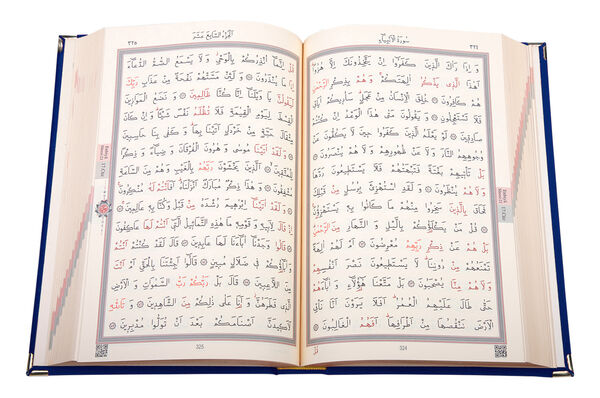 سُورَةُ الْأَنْبِيَاءِ ٣٢٤
وَإِذَا رَآكَ الَّذِينَ كَفَرُوا إِنْ يَتَّخِذُونَكَ إِلَّا هُزُوًا
أَهَذَا الَّذِي يَذْكُرُ آلِهَتَكُمْ وَهُمْ بِذِكْرِ الرَّحْمَنِ
هُمْ كَافِرُونَ خُلِقَ الْإِنْسَانُ مِنْ عَجَلٍ سَأُرِيكُمْ آيَاتِي
فَلَا تَسْتَعْجِلُونِ وَيَقُولُونَ مَتَى هَذَا الْوَعْدُ إِنْ كُنْتُمْ
صَادِقِينَ لَوْ يَعْلَمُ الَّذِينَ كَفَرُوا حِينَ لَا يَكُفُّونَ عَنْ
وُجُوهِهِمُ النَّارَ وَلَا عَنْ ظُهُورِهِمْ وَلَا هُمْ يُنْصَرُونَ
بَلْ تَأْتِيهِمْ بَغْتَةً فَتَبْهَتُهُمْ فَلَا يَسْتَطِيعُونَ رَدَّهَا
وَلَا هُمْ يُنْظَرُونَ وَلَقَدِ اسْتُهْزِئَ بِرُسُلٍ مِنْ قَبْلِكَ
فَحَاقَ بِالَّذِينَ سَخِرُوا مِنْهُمْ مَا كَانُوا بِهِ يَسْتَهْزِؤُنَ
قُلْ مَنْ يَكْلَؤُكُمْ بِاللَّيْلِ وَالنَّهَارِ مِنَ الرَّحْمَنِ
بَلْ هُمْ عَنْ ذِكْرِ رَبِّهِمْ مُعْرِضُونَ أَمْ لَهُمْ آلِهَةٌ
تَمْنَعُهُمْ مِنْ دُونِنَا لَا يَسْتَطِيعُونَ نَصْرَ أَنْفُسِهِمْ
وَلَا هُمْ مِنَّا يُصْحَبُونَ بَلْ مَتَّعْنَا هَؤُلَاءِ وَآبَاءَهُمْ
حَتَّى طَالَ عَلَيْهِمُ الْعُمُرُ أَفَلَا يَرَوْنَ أَنَّا نَأْتِي
الْأَرْضَ نَنْقُصُهَا مِنْ أَطْرَافِهَا أَفَهُمُ الْغَالِبُونَ
قُلْ
324
اَلْجُزْءُ السَّابِعَ عَشَرَ ٣٢٥
قُلْ إِنَّمَا أُنْذِرُكُمْ بِالْوَحْيِ وَلَا يَسْمَعُ الصُّمُّ الدُّعَاءَ
إِذَا مَا يُنْذَرُونَ وَلَئِنْ مَسَّتْهُمْ نَفْحَةٌ مِنْ عَذَابِ رَبِّكَ
لَيَقُولُنَّ يَا وَيْلَنَا إِنَّا كُنَّا ظَالِمِينَ وَنَضَعُ الْمَوَازِينَ
الْقِسْطَ لِيَوْمِ الْقِيَمَةِ فَلَا تُظْلَمُ نَفْسٌ شَيْئًا وَإِنْ كَانَ
مِثْقَالَ حَبَّةٍ مِنْ خَرْدَلٍ أَتَيْنَا بِهَا وَكَفَى بِنَا حَاسِبِينَ
وَلَقَدْ آتَيْنَا مُوسَى وَهَرُونَ الْفُرْقَانَ وَضِيَاءً وَذِكْرًا
لِلْمُتَّقِينَ الَّذِينَ يَخْشَوْنَ رَبَّهُمْ بِالْغَيْبِ وَهُمْ مِنَ السَّاعَةِ
مُشْفِقُونَ وَهَذَا ذِكْرٌ مُبَارَكٌ أَنْزَلْنَاهُ أَفَأَنْتُمْ لَهُ مُنْكِرُونَ
وَلَقَدْ آتَيْنَا إِبْرَهِيمَ رُشْدَهُ مِنْ قَبْلُ وَكُنَّا بِهِ عَالِمِينَ
إِذْ قَالَ لِأَبِيهِ وَقَوْمِهِ مَا هَذِهِ التَّمَاثِيلُ الَّتِي أَنْتُمْ لَهَا عَاكِفُونَ
قَالُوا وَجَدْنَا آبَاءَنَا لَهَا عَابِدِينَ قَالَ لَقَدْ كُنْتُمْ أَنْتُمْ
وَآبَاؤُكُمْ فِي ضَلَالٍ مُبِينٍ قَالُوا أَجِئْتَنَا بِالْحَقِّ أَمْ أَنْتَ
مِنَ اللَّاعِبِينَ قَالَ بَلْ رَبُّكُمْ رَبُّ السَّمَوَاتِ وَالْأَرْضِ
الَّذِي فَطَرَهُنَّ وَأَنَا عَلَى ذَلِكُمْ مِنَ الشَّاهِدِينَ وَتَاللَّهِ
لَأَكِيدَنَّ أَصْنَامَكُمْ بَعْدَ أَنْ تُوَلُّوا مُدْبِرِينَ
325